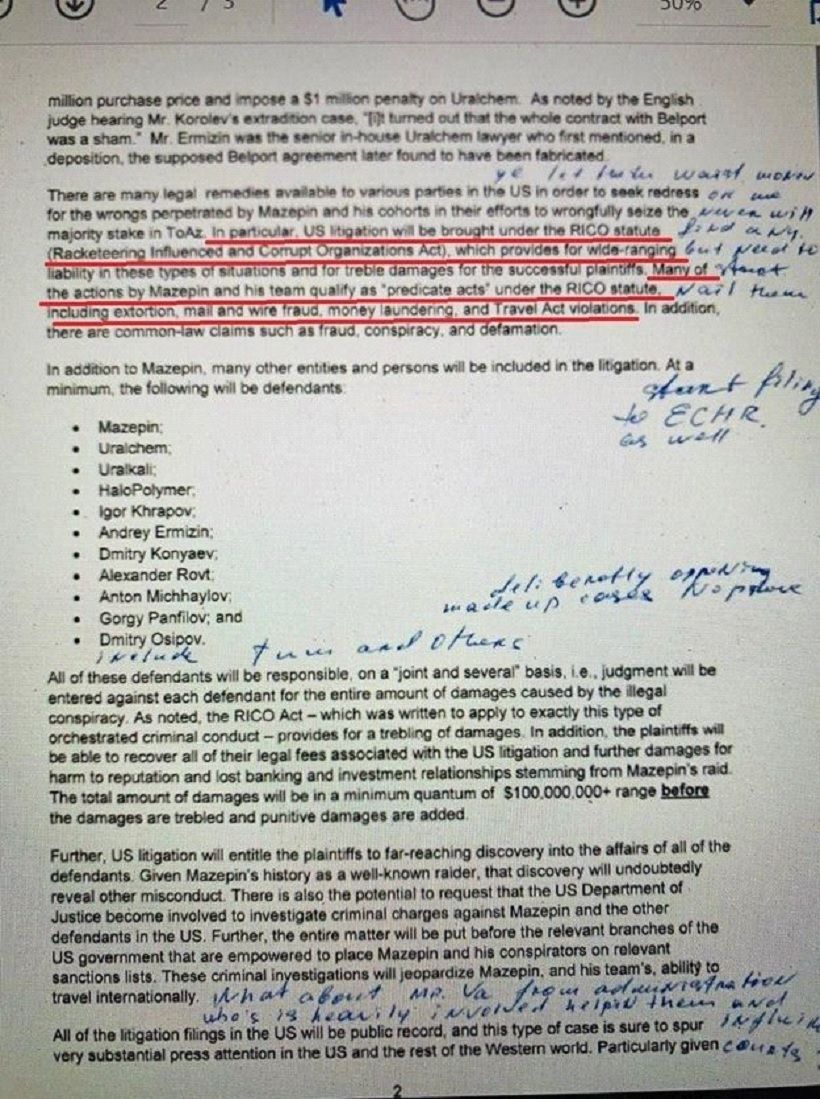 2 / 3
50%
million purchase price and impose a $1 million penalty on Uralchem. As noted by the English
judge hearing Mr. Korolev's extradition case, "[i]t turned out that the whole contract with Belport
was a sham." Mr. Ermizin was the senior in-house Uralchem lawyer who first mentioned, in a
deposition, the supposed Belport agreement later found to have been fabricated.
ye let them waist money
There are many legal remedies available to various parties in the US in order to seek redress on me
for the wrongs perpetrated by Mazepin and his cohorts in their efforts to wrongfully seize the never will
majority stake in ToAz. In particular, US litigation will be brought under the RICO statute find any.
(Racketeering Influenced and Corrupt Organizations Act), which provides for wide-ranging but need to
liability in these types of situations and for treble damages for the successful plaintiffs. Many of start
the actions by Mazepin and his team qualify as "predicate acts" under the RICO statute, Nail them
including extortion, mail and wire fraud, money laundering, and Travel Act violations. In addition,
there are common-law claims such as fraud, conspiracy, and defamation.
In addition to Mazepin, many other entities and persons will be included in the litigation. At a
minimum, the following will be defendants:
start filing
to ECHR.
as well
• Mazepin;
• Uralchem;
• Uralkali;
• HaloPolymer;
• Igor Khrapov;
• Andrey Ermizin;
• Dmitry Konyaev;
• Alexander Rovt;
• Anton Michhaylov;
• Gorgy Panfilov; and
• Dmitry Osipov.
deliberatly oppening
made up cases No prove
include turn and others
All of these defendants will be responsible, on a "joint and several" basis, i.e., judgment will be
entered against each defendant for the entire amount of damages caused by the illegal
conspiracy. As noted, the RICO Act – which was written to apply to exactly this type of
orchestrated criminal conduct – provides for a trebling of damages. In addition, the plaintiffs will
be able to recover all of their legal fees associated with the US litigation and further damages for
harm to reputation and lost banking and investment relationships stemming from Mazepin's raid.
The total amount of damages will be in a minimum quantum of $100,000,000+ range before
the damages are trebled and punitive damages are added.
Further, US litigation will entitle the plaintiffs to far-reaching discovery into the affairs of all of the
defendants. Given Mazepin's history as a well-known raider, that discovery will undoubtedly
reveal other misconduct. There is also the potential to request that the US Department of
Justice become involved to investigate criminal charges against Mazepin and the other
defendants in the US. Further, the entire matter will be put before the relevant branches of the
US government that are empowered to place Mazepin and his conspirators on relevant
sanctions lists. These criminal investigations will jeopardize Mazepin, and his team's, ability to
travel internationally. What about Mr. Va from administration
who's is heavily involved helpin them and
All of the litigation filings in the US will be public record, and this type of case is sure to spur
very substantial press attention in the US and the rest of the Western world. Particularly given courts
2